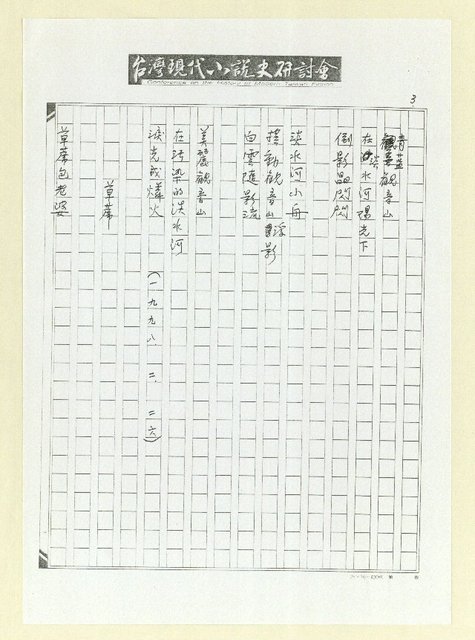 台灣現代小說史研討會
Conference on the History of Modern Taiwan Fiction
3
青藍
觀音山
在淡水河陽光下
倒影晶閃閃
淡水河小舟
搖動觀音山浮影
白雲隨影流
美麗觀音山
在污染的淡水河
淚光成燐火
(一九九八.二.二六)
草蓆
草蓆包老婆